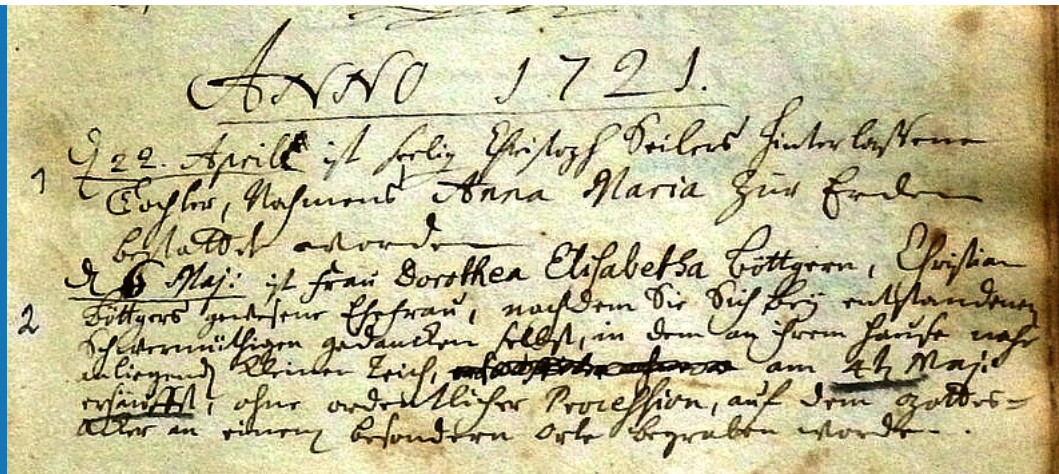 ANNO 1721.
1 d 22. Aprill ist seelig Christoph Seilers hinterlassene
Tochter, Nahmens Anna Maria zur Erden
bestattet worden
2 d 6 Maj: ist Frau Dorothea Elisabetha Böttgern, Christian
Böttgers gewesene Ehefrau, nachdem Sie Sich bey entstandenen
Schwermüthigen gedancken selbst, in dem an ihrem Hause nahe
anliegend kleinen Teich, am 4t Maji
ersäufft, ohne ordentlicher Procession, auf dem Gottes-
Acker an einem besondern Orte begraben worden.